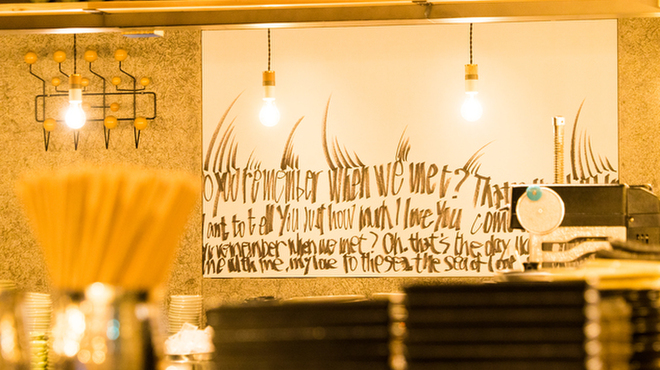 o you remember when we met? That
want to tell you just how much I love you com
you remember when we met? Oh, that's the day
me with me, my love to the sea, the sea of love